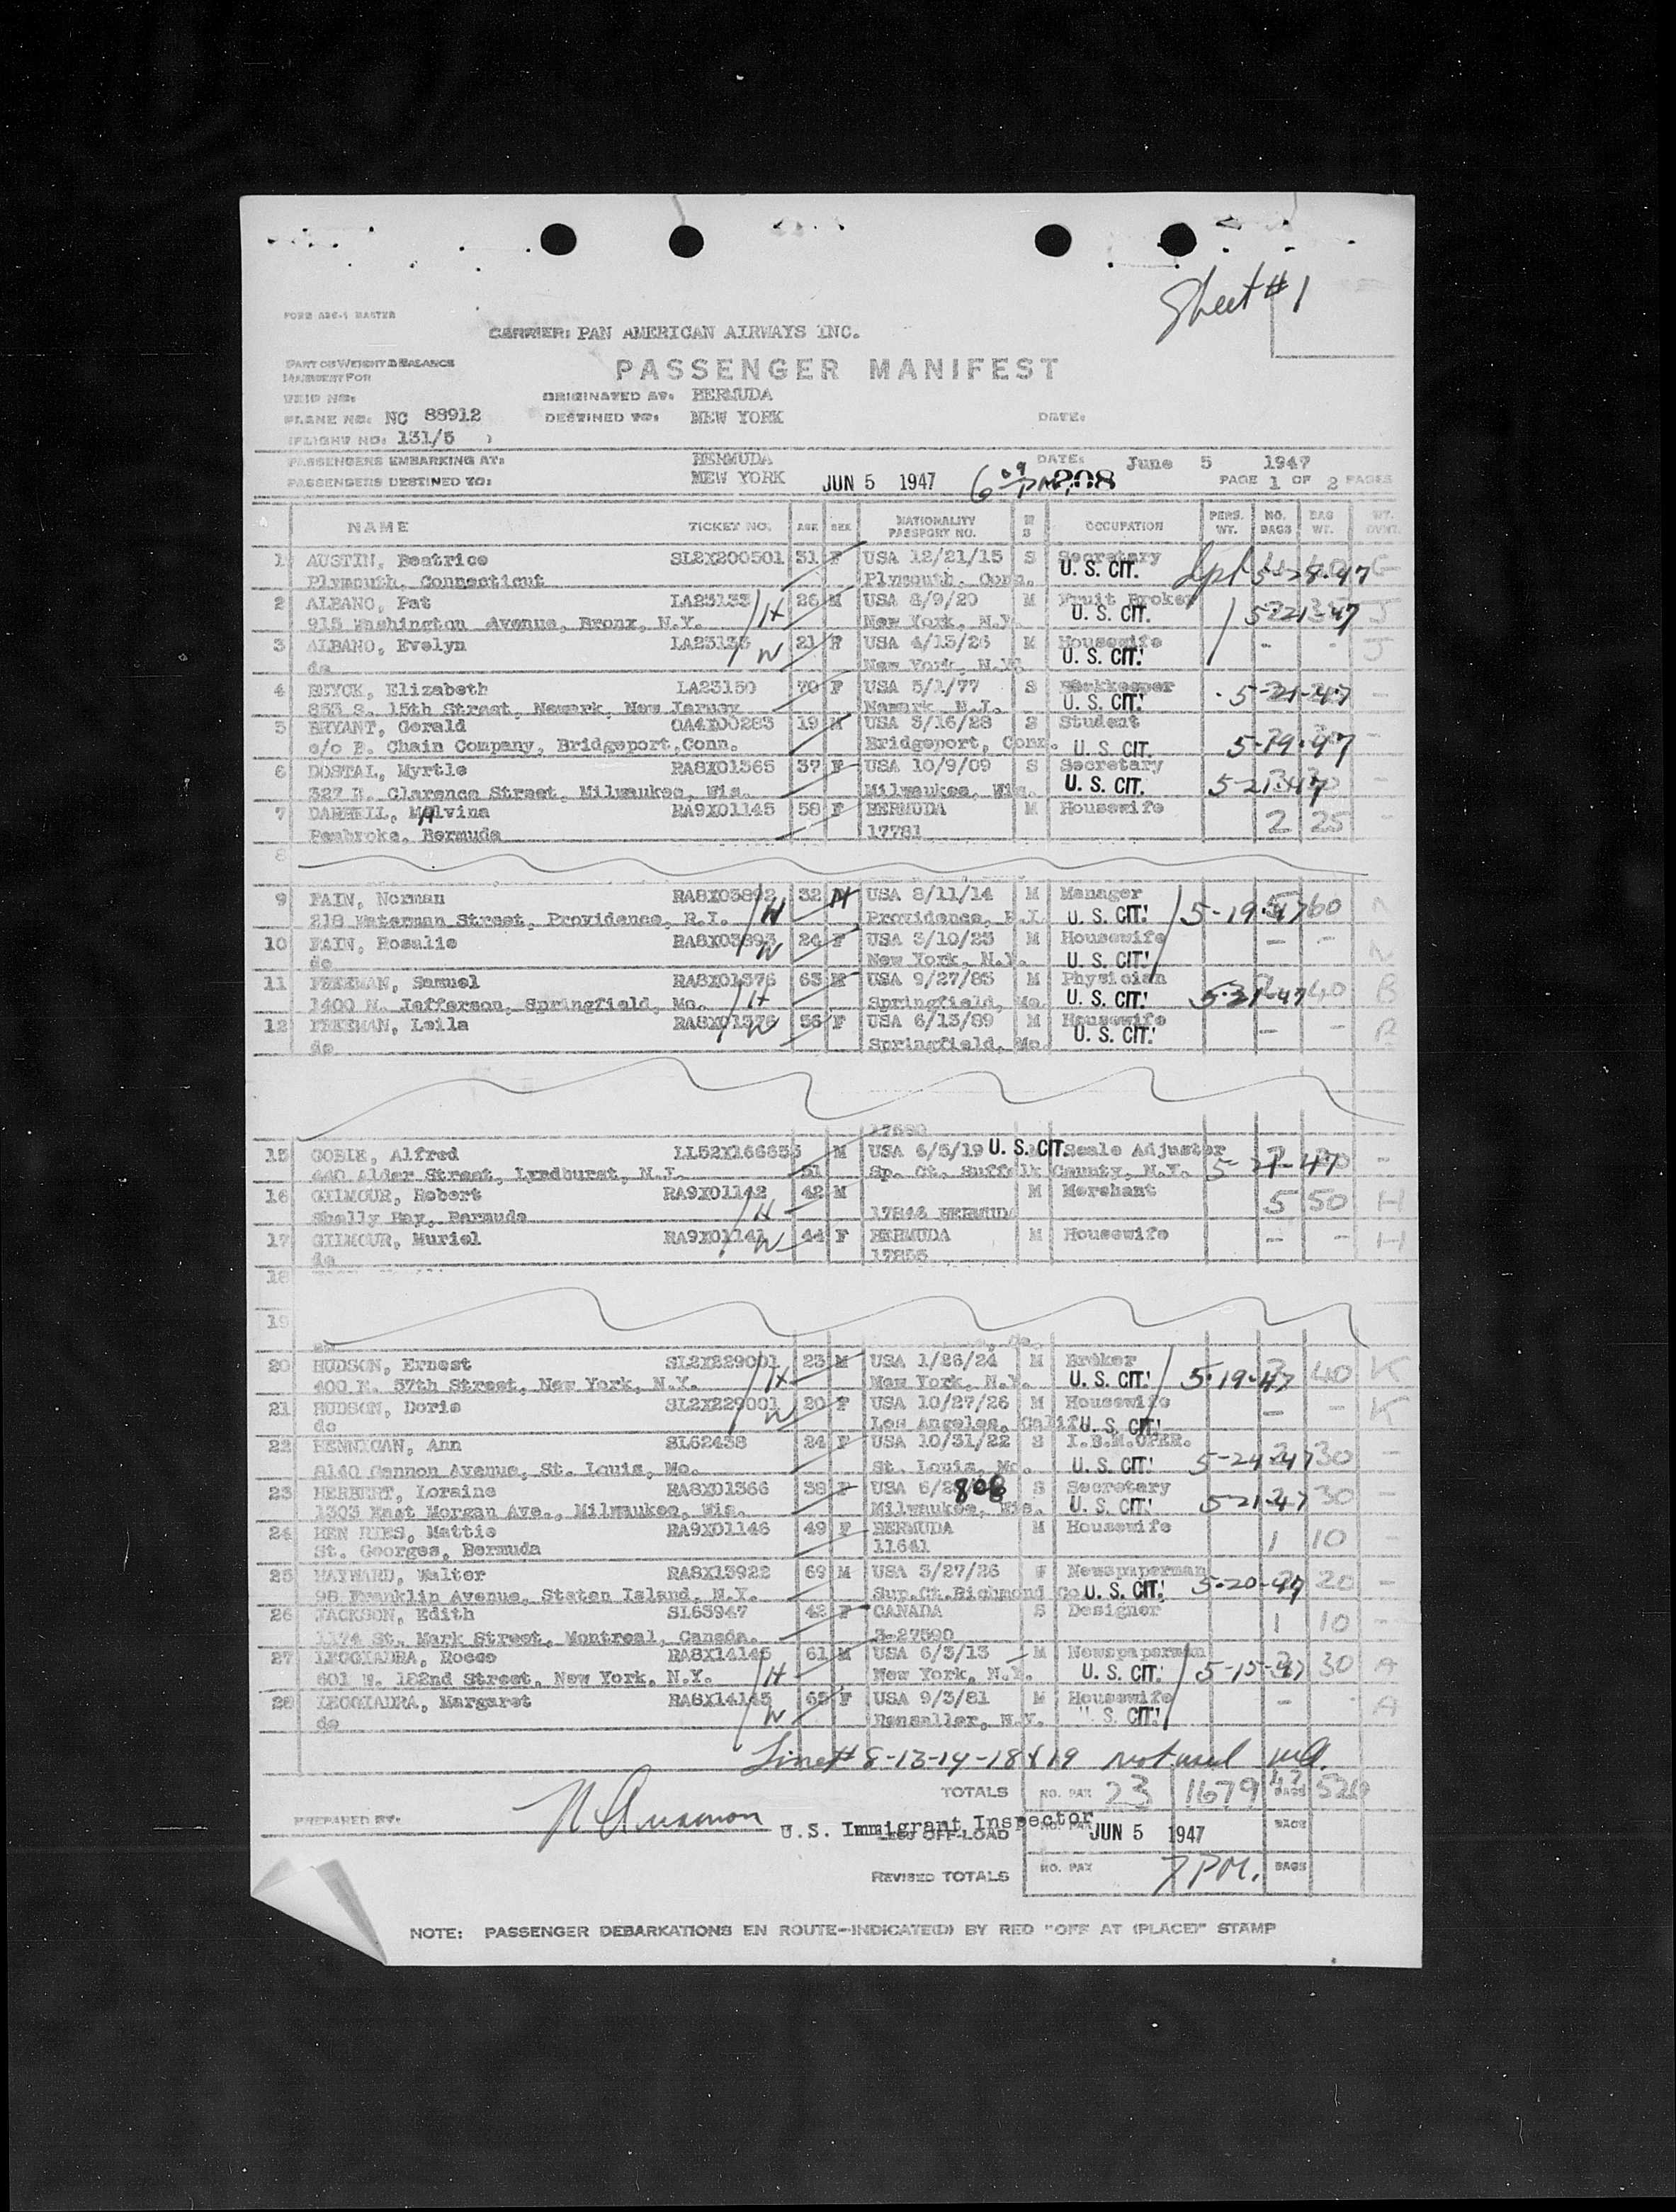 Sheet #1
FORM
CARRIER: PAN AMERICAN AIRWAYS INC.
PART OF WEIGHT & BALANCE
MANIFEST FOR
PASSENGER MANIFEST
ORIGINATED AT: BERMUDA
PLANE NO: NC 88912 DESTINED TO: NEW YORK DATE:
(FLIGHT NO: 131/5 )
PASSENGERS EMBARKING AT: BERMUDA DATE: June 5 1947
PASSENGERS DESTINED TO: NEW YORK JUN 5 1947 6 09 PM. 208 PAGE 1 OF 2 PAGES
NAME TICKET NO. AGE SEX NATIONALITY PASSPORT NO. M S OCCUPATION PERS. WT. NO. BAGS BAG WT.
1 AUSTIN, Beatrice SL2X200501 31 F USA 12/21/15 S Secretary
Plymouth, Connecticut Plymouth, Conn. U. S. CIT. 5-28-47 G
2 ALBANO, Pat LA23135 26 M USA 8/9/20 M Fruit Broker
915 Washington Avenue, Bronx, N.Y. H New York, N.Y. U. S. CIT. 5-21-47 J
3 ALBANO, Evelyn LA23136 21 F USA 4/15/26 M Housewife - - J
do W New York, N.Y. U. S. CIT.
4 Elizabeth LA23150 70 F USA 5/1/77 S Bookkeeper 5-21-47 -
853 S. 15th Street, Newark, New Jersey Newark N.J. U. S. CIT.
5 BRYANT, Gerald OA4X00283 19 M USA 3/16/28 S Student
c/o B. Chain Company, Bridgeport,Conn. Bridgeport, Conn. U. S. CIT. 5-19-47 -
6 DOSTAL, Myrtle RA8X01365 37 F USA 10/9/09 S Secretary
327 E. Clarence Street, Milwaukee, Wis. Milwaukee, Wis. U. S. CIT. 5-21-47 -
7 DARRELL, Malvina RA9X01145 58 F BERMUDA M Housewife
Pembroke, Bermuda 17781 2 25 -
8
9 FAIN, Norman RA8X03892 32 M USA 8/11/14 M Manager
218 Waterman Street, Providence, R.I. H Providence, R.I. U. S. CIT. 5-19-47 60 N
10 FAIN, Rosalie RA8X03893 24 F USA 3/10/23 M Housewife - - N
do W New York, N.Y. U. S. CIT.
11 FREEMAN, Samuel RA8X01376 63 M USA 9/27/85 M Physician
1400 N. Jefferson, Springfield, Mo. H Springfield, Mo. U. S. CIT. 5-21-47 40 B
12 FREEMAN, Leila RA8X01376 56 F USA 6/13/89 M Housewife
do W Springfield, Mo. U. S. CIT. - - B
15 GOBIE, Alfred M USA 6/5/19 U. S. CIT. Scale Adjuster
440 Alder Street, Lyndhurst, N.J. 51 Sp. Ct. Suffolk County, N.Y. 5-21-47 -
16 GILMOUR, Robert RA9X01142 42 M M Merchant
Shelly Bay, Bermuda H 17846 BERMUDA 5 50 H
17 GILMOUR, Muriel RA9X01141 44 F BERMUDA M Housewife - - H
do W 17855
18
19
20 HUDSON, Ernest SL2X229001 23 M USA 1/26/24 M Broker
400 E. 57th Street, New York, N.Y. H New York, N.Y. U. S. CIT. 5-19-47 40 K
21 HUDSON, Doris SL2X229001 20 F USA 10/27/26 M Housewife - - K
do W Los Angeles, Calif. U. S. CIT.
22 HENNIGAN, Ann SL62438 24 F USA 10/31/22 S I.B.M.OPER.
8140 Gannon Avenue, St. Louis, Mo. St. Louis, Mo. U. S. CIT. 5-24-47 30 -
23 HERBERT, Loraine RA8X01366 38 F USA 6/28/08 S Secretary
1303 East Morgan Ave., Milwaukee, Wis. Milwaukee, Wis. U. S. CIT. 5-21-47 30 -
24 Mattie RA9X01146 49 F BERMUDA M Housewife
St. Georges, Bermuda 11641 1 10 -
25 HAYWARD, Walter RA8X13922 69 M USA 3/27/26 Newspaperman
98 Franklin Avenue, Staten Island, N.Y. Sup.Ct.Richmond Co U. S. CIT. 5-20-47 20 -
26 JACKSON, Edith SL63947 42 F CANADA S Designer
1174 St. Mark Street, Montreal, Canada. 3-27590 1 10 -
27 LEGGIADRA, Rocco RA8X14145 61 M USA 6/3/13 M Newspaperman
601 W. 182nd Street, New York, N.Y. H New York, N.Y. U. S. CIT. 5-15-47 30 A
28 LEGGIADRA, Margaret RA8X14145 65 F USA 9/3/81 M Housewife
do W Rensaller, N.Y. U. S. CIT. - A
Line# 8-13-14-18 & 19 not used
TOTALS NO. PAX 23 1679 47 BAGS 520
PREPARED BY: U.S. Immigrant Inspector
LESS OFF-LOAD JUN 5 1947 BAGS
REVISED TOTALS NO. PAX 7 PM. BAGS
NOTE: PASSENGER DEBARKATIONS EN ROUTE—INDICATE(D) BY RED "OFF AT (PLACE)" STAMP